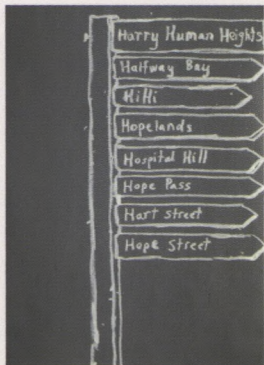 Harry Human Heights
Halfway Bay
HiHi
Hopelands
Hospital Hill
Hope Pass
Hart Street
Hope Street